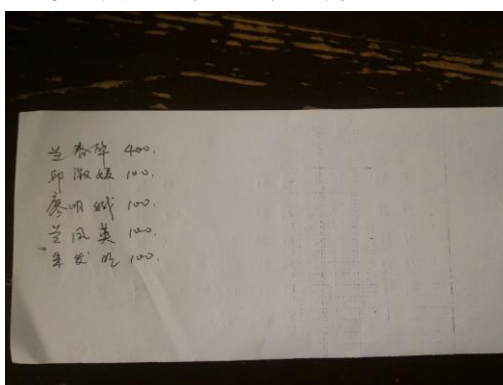 兰春华 400.
邱淑媛 100.
廖明城 100.
兰凤英 100.
朱发明 100.